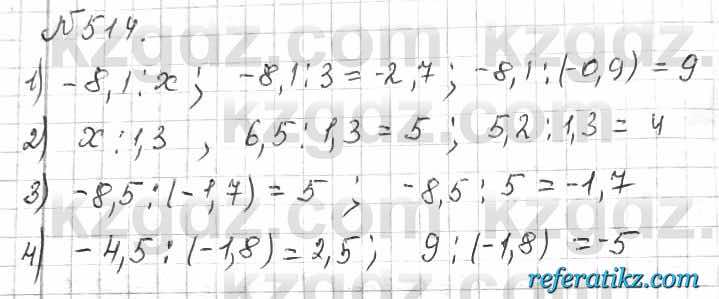 №514.
1) -8,1:x; -8,1:3=-2,7; -8,1:(-0,9)=9
2) x:1,3, 6,5:1,3=5; 5,2:1,3=4
3) -8,5:(-1,7)=5; -8,5:5=-1,7
4) -4,5:(-1,8)=2,5; 9:(-1,8)=-5
kzgdz.com
kzgdz.com
kzgdz.com
kzgdz.com
referatikz.com